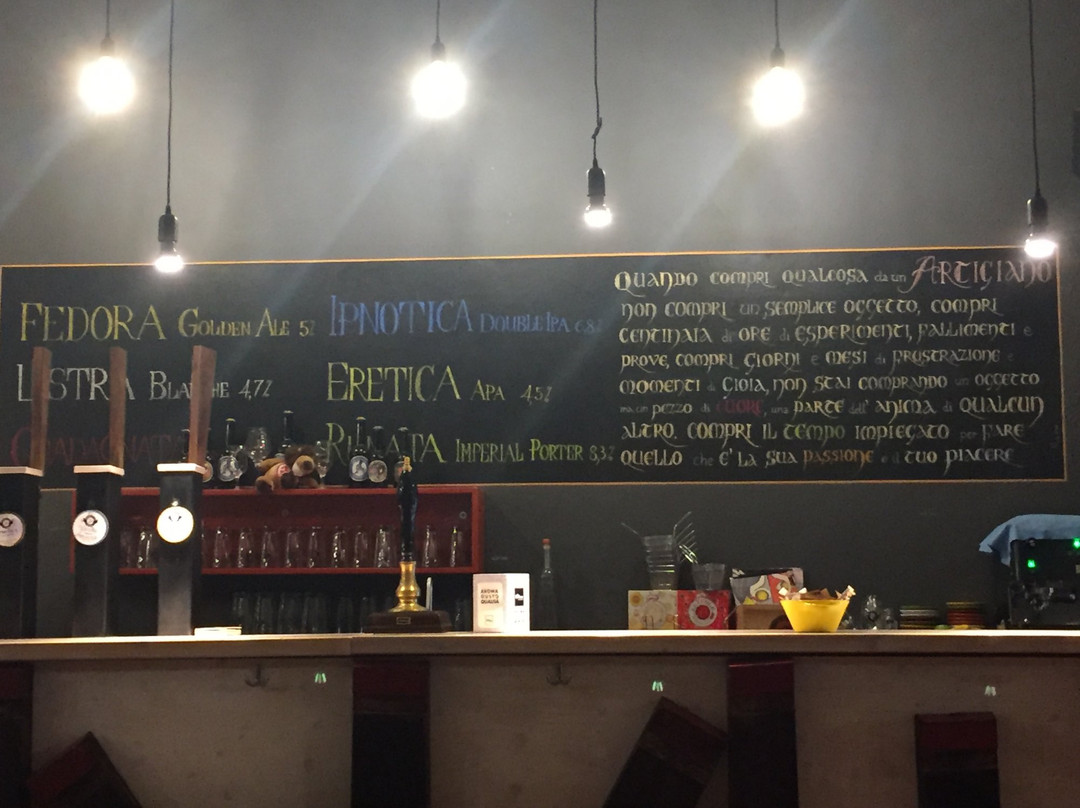 FEDORA GOLDEN ALE 5%
IPNOTICA DOUBLE IPA 6,8%
BLANCHE 4,7%
ERETICA APA 4,5%
IMPERIAL PORTER 8,3%
QUANDO COMPRI QUALCOSA da un ARTIGIANO
NON COMPRI UN SEMPLICE OGGETTO, COMPRI
CENTINAIA di ORE di ESPERIMENTI, FALLIMENTI e
PROVE, COMPRI GIORNI e MESI di FRUSTRAZIONE e
MOMENTI di GIOIA, NON STAI COMPRANDO un OGGETTO
ma un PEZZO di CUORE, una PARTE dell' ANIMA di QUALCUN
ALTRO, COMPRI IL TEMPO IMPIEGATO per FARE
QUELLO che E' LA SUA PASSIONE e il TUO PIACERE
AROMA
GUSTO
QUALITÀ